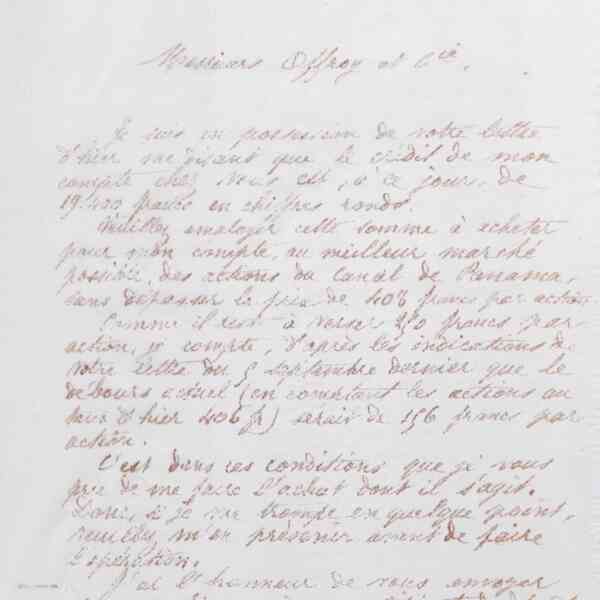 Messieurs Offroy et Cie.
Je suis en possession de votre lettre
d'hier me disant que le crédit de mon
compte chez vous est, à ce jour, de
19.400 francs en chiffres ronds.
Veuillez employer cette somme à acheter
pour mon compte, au meilleur marché
possible, des actions du canal de Panama,
sans dépasser le prix de 408 francs par action
Comme il reste à verser 250 francs par
action, je compte, d'après les indications de
votre lettre du 5 septembre dernier que le
débours actuel (en comptant les actions au
taux d'hier 406 f) serait de 156 francs par
action.
C'est dans ces conditions que je vous
prie de me faire l'achat dont il s'agit.
Donc, si je me trompe en quelque point,
veuillez m'en prévenir avant de faire
l'opération.
J'ai l'honneur de vous envoyer